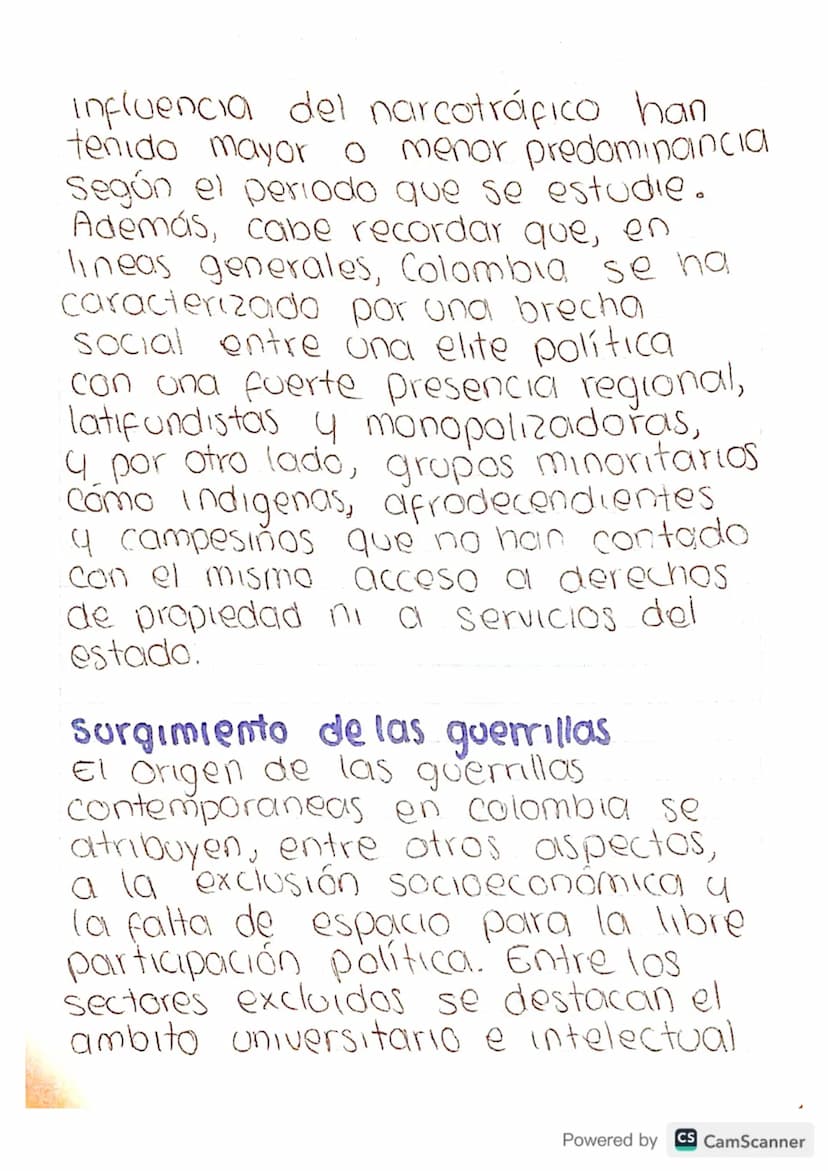 influencia del narcotráfico han
tenido mayor o menor predominancia
según el periodo que se estudie.
Además, cabe recordar que, en
lineas generales, Colombia se ha
caracterizado por una brecha
social entre una elite política
con una fuerte presencia regional,
latifundistas y monopolizadoras,
y por otro lado, grupos minoritarios
cómo indigenas, afrodecendientes
y campesinos que no han contado
con el mismo acceso a derechos
de propiedad ni a servicios del
estado.
Surgimiento de las guerrillas
El origen de las guerrillas
contemporaneas en colombia se
atribuyen, entre otros aspectos,
a la exclusión socioeconómica y
la falta de espacio para la libre
participación política. Entre los
sectores excluidos se destacan el
ambito universitario e intelectual
Powered by CS CamScanner